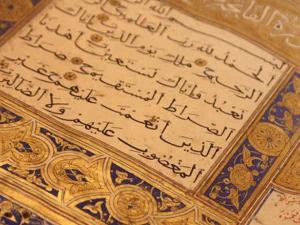 بسم الله
الحمد لله رب العلمين
الرحيم ملك يوم الدين اياك
نعبد واياك نستعين اهدنا
الصراط المستقيم صراط
الذين انعمت عليهم غير
المغضوب عليهم ولا الضالين